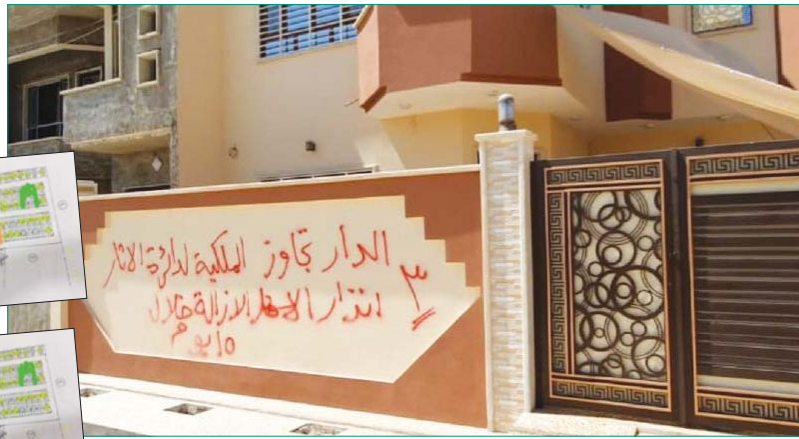 الدار تجاوز الملكية لدائرة الاثار
٣ انذار الازالة خلال
١٥ يوم